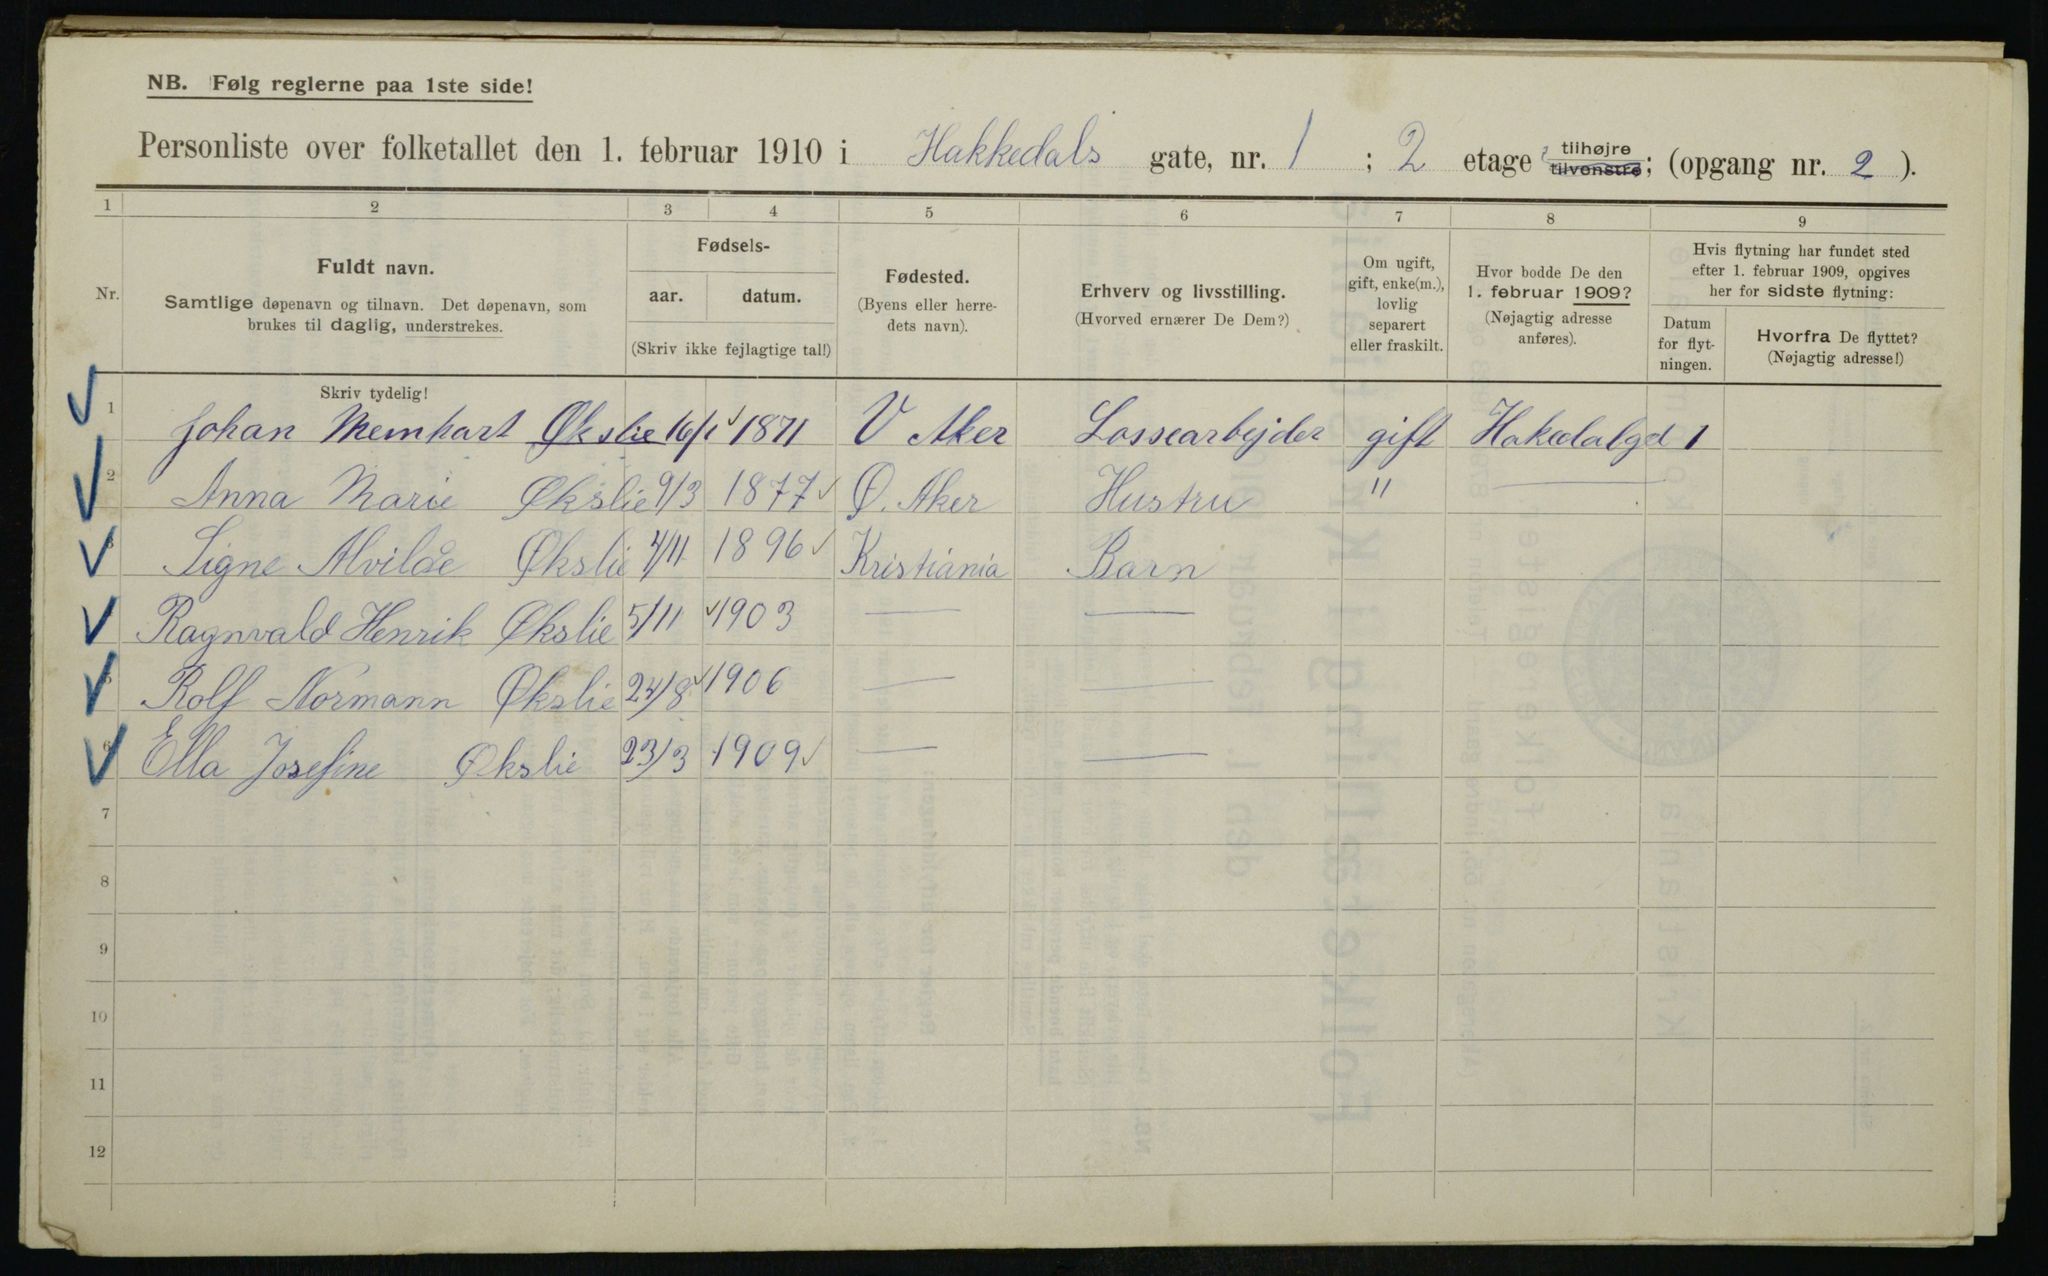 NB. Følg reglerne paa 1ste side!
Personliste over folketallet den 1. februar 1910 i Hakkedals gate, nr. 1 ; 2 etage tilhøjre tilvenstre; (opgang nr. 2 ).
1 2 3 4 5 6 7 8 9
Nr.
Fuldt navn.
Samtlige døpenavn og tilnavn. Det døpenavn, som
brukes til daglig, understrekes.
Fødsels-
aar. datum.
(Skriv ikke fejlagtige tal!)
Fødested.
(Byens eller herre-
dets navn).
Erhverv og livsstilling.
(Hvorved ernærer De Dem?)
Om ugift,
gift, enke(m.),
lovlig
separert
eller fraskilt.
Hvor bodde De den
1. februar 1909?
(Nøjagtig adresse
anføres).
Hvis flytning har fundet sted
efter 1. februar 1909, opgives
her for sidste flytning:
Datum
for flyt-
ningen.
Hvorfra De flyttet?
(Nøjagtig adresse!)
Skriv tydelig!
1 Johan Meinhart Økslie 16/1 1871 V Aker Lossearbejder gift Hakedalgd 1
2 Anna Marie Økslie 9/3 1877 Ø. Aker Hustru "
3 Signe Alvilde Økslie 4/11 1896 Kristiania Barn
Ragnvald Henrik Økslie 5/11 1903 — —
5 Rolf Normann Økslie 24/8 1906 — —
6 Ella Josefine Økslie 23/3 1909 — —
7
8
9
10
11
12